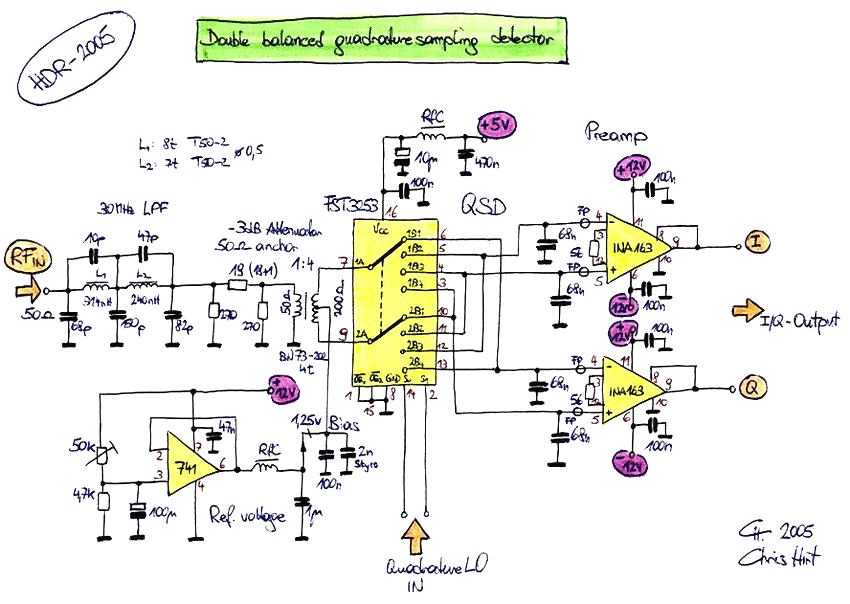 HDR-2005
Double balanced quadrature sampling detector
L1: 8t T50-2
L2: 7t T50-2 ø0,5
RFC
+5V
10µ
470n
100n
Preamp
+12V
100n
30MHz LPF
-3dB Attenuator
50Ω anchor
FST3253
16
QSD
Vcc
RF IN
50Ω
10p
47p
L1
L2
314nH
240nH
68p
150p
82p
18 (18+1)
270
270
1:4
50Ω
200Ω
BN73-202
4t
7
1A
1B1
1B2
1B3
1B4
6
5
4
3
9
2A
2B1
2B2
2B3
2B4
10
11
12
13
OE1 OE2 GND S0 S1
1
15
8
14
2
68n
68n
FP
FP
4
3
5
11
INA163
8
9
10
6
-12V
100n
I
I/Q-Output
+12V
100n
68n
68n
FP
FP
4
3
12
5
11
INA163
8
9
10
6
100n
-12V
Q
+12V
50k
4,7k
100µ
2
3
741
7
4
6
47n
RFC
1,25V Bias
100n
2n
Styro
1µ
Ref. voltage
Quadrature LO
IN
CH. 2005
Chris Hirt